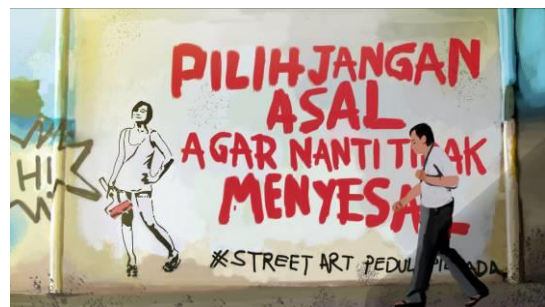 HI
PILIH JANGAN
ASAL
AGAR NANTI TIDAK
MENYESAL
#STREET ART PEDULI